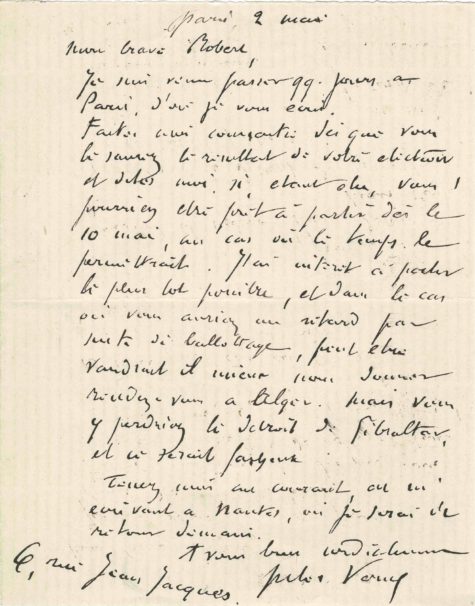 Paris 2 mai
Mon brave Robert,
Je suis venu passer qq. jours à
Paris, d'où je vous écris.
Faites moi connaître dès que vous
le saurez le résultat de votre élection
et dites moi, si, étant élu, vous
pourriez être prêt à partir dès le
10 mai, au cas où le temps le
permettrait. J'ai intérêt à partir
le plus tôt possible, et dans le cas
où vous auriez un retard par
suite de ballottage, peut être
vaudrait il mieux nous donner
rendez vous à Alger. Mais vous
y perdriez le détroit de Gibraltar,
et ce serait fâcheux
Tenez moi au courant, en m'
écrivant à Nantes, où je serai de
retour demain.
A vous bien cordialement
Jules Verne
6, rue Jean Jacques.